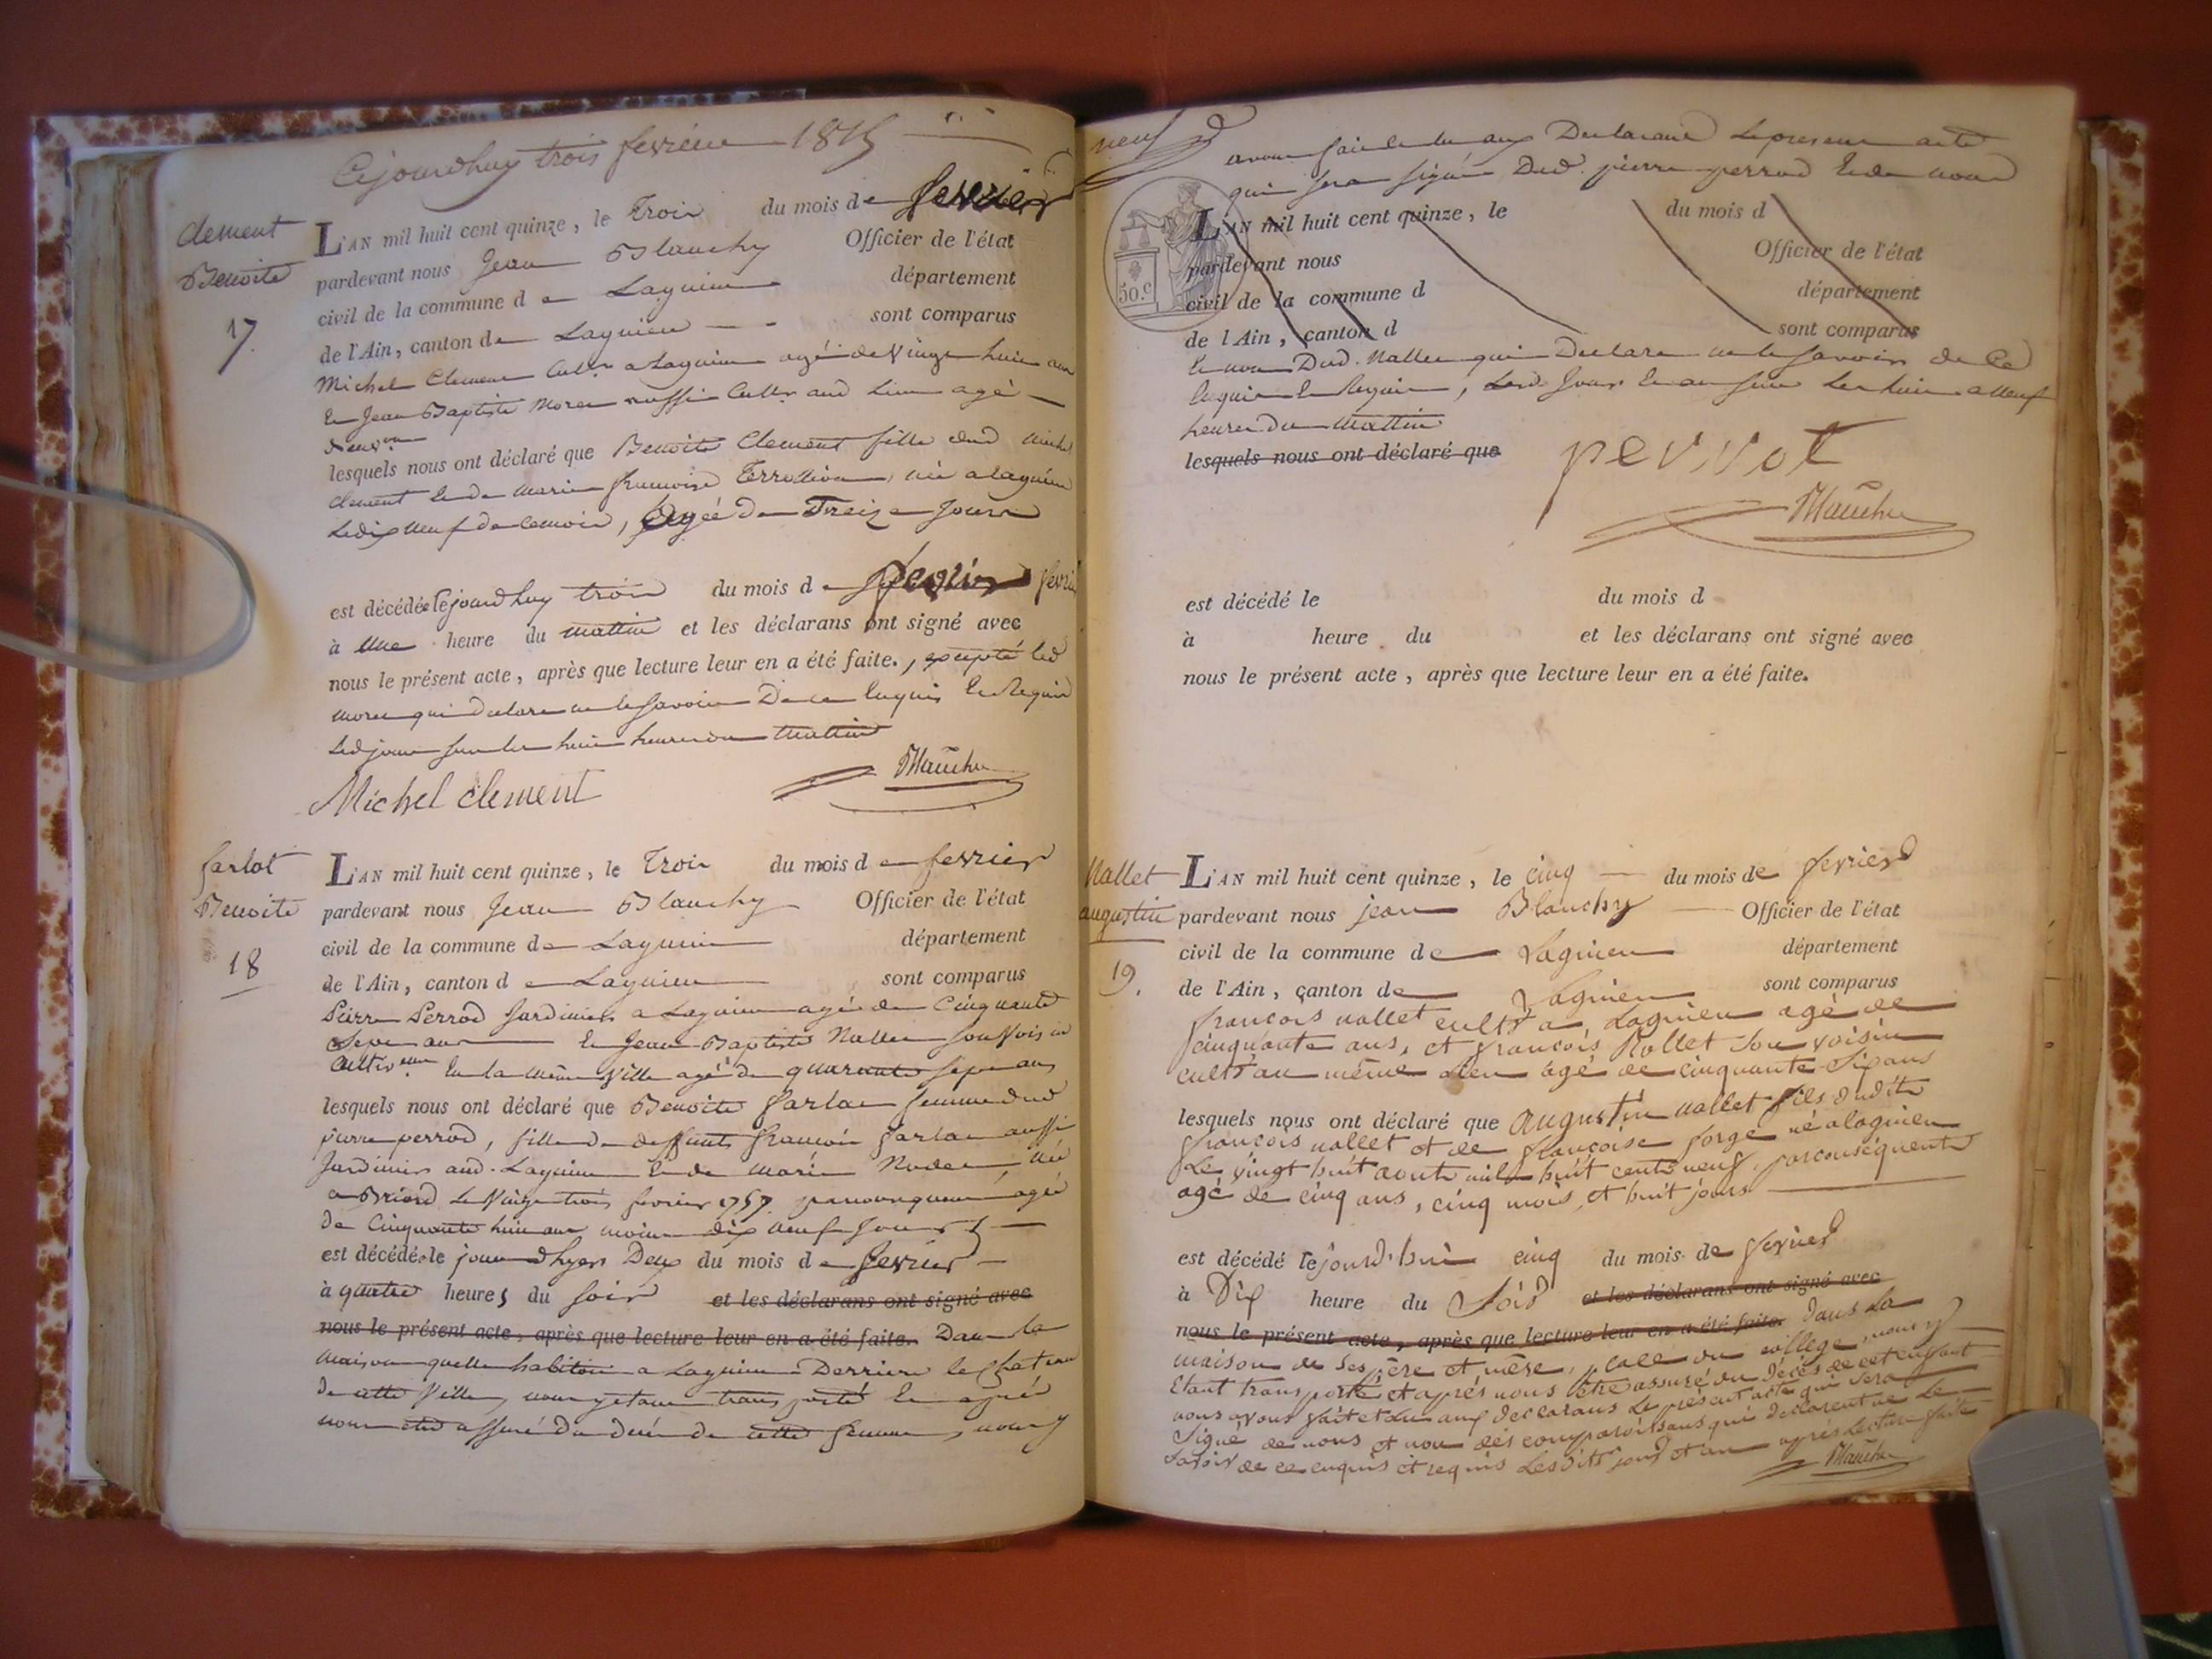 Cejourdhuy trois fevrier 1815
clement
Benoite
17.
L'AN mil huit cent quinze, le Trois du mois de fevrier
pardevant nous Jean Blanchy Officier de l'état
civil de la commune de Lagnieu département
de l'Ain, canton de Lagnieu sont comparus
Michel Clement Cultr a Lagnieu agé de vingt huit ans
Et Jean Baptiste Morel aussi Cultr aud Lieu agé
lesquels nous ont déclaré que Benoite Clement fille dud Michel
Clement et de Marie francoise née a lagnieu
Le dix neuf de cemois, agée de Treize jours
est décédée cejourdhuy trois du mois de fevrier
à une heure du mattin et les déclarans ont signé avec
nous le présent acte, après que lecture leur en a été faite., excepté led
Morel qui declare ne le savoir De ce Enquis Et Requis
Led jour sur les huit heures du Mattin
Michel clement Blanchy
farlot
Benoite
18
L'AN mil huit cent quinze, le Trois du mois de fevrier
pardevant nous Jean Blanchy Officier de l'état
civil de la commune de Lagnieu département
de l'Ain, canton de Lagnieu sont comparus
Pierre Perrod Jardinier a Lagnieu agé de Cinquante
Sept ans Et Jean Baptiste Nallet son voisin
Cultivateur En la même ville agé de quarante sept ans
lesquels nous ont déclaré que Benoite farlot femme dud
pierre perrod, fille de deffunts francois farlot aussi
Jardinier aud. Lagnieu Et de Marie née
a Briord Le vingt trois fevrier 1757 parconsequent agée
de Cinquante huit ans moins dix neuf jours
est décédée le jour dhyer Deux du mois de fevrier
à quatre heures du soir et les déclarans ont signé avec
nous le présent acte, après que lecture leur en a été faite. Dans la
maison quelle habitoit a Lagnieu Derriere le chateau
de cette ville, nous y etant transporté Et après
nous etre assuré du decés de cette femme, nous y
neuf
avons fait et lu aux Declarans Le present acte
qui sera signé Dud. pierre perrod Et de nous
50.c
L'AN mil huit cent quinze, le du mois d
pardevant nous Officier de l'état
civil de la commune d département
de l'Ain, canton d sont comparus
Et non Dud. Nallet qui Declare ne le savoir de Ce
Enquis Et Requis, Lesd Jour Et an sur Les huit a Neuf
heures du Mattin
lesquels nous ont déclaré que perrot
Blanchy
est décédé le du mois d
à heure du et les déclarans ont signé avec
nous le présent acte, après que lecture leur en a été faite.
Nallet
augustin
19.
L'AN mil huit cent quinze, le cinq du mois de fevrier
pardevant nous jean Blanchy Officier de l'état
civil de la commune de Lagnieu département
de l'Ain, canton de Lagnieu sont comparus
françois nallet cultr a Lagnieu agé de
cinquante ans, et françois Rollet son voisin
cultr au même lieu agé de cinquante six ans
lesquels nous ont déclaré que augustin nallet fils dudit
françois nallet et de françoise forge né a lagnieu
Le vingt huit aoust mil huit cent neuf, parconséquent
agé de cinq ans, cinq mois et huit jours
est décédé cejourd'hui cinq du mois de fevrier
à Dix heure du Soir et les déclarans ont signé avec
nous le présent acte, après que lecture leur en a été faite. dans la
maison de ses père et mère, place du college, nous y
Etant transporté et après nous être assuré du décès de cet enfant
nous avons fait et lu aux declarans Le present acte qui sera
signé de nous et non des comparoissans qui declarent ne le
savoir de ce enquis et requis Lesdits jour et an après lecture faite
Blanchy